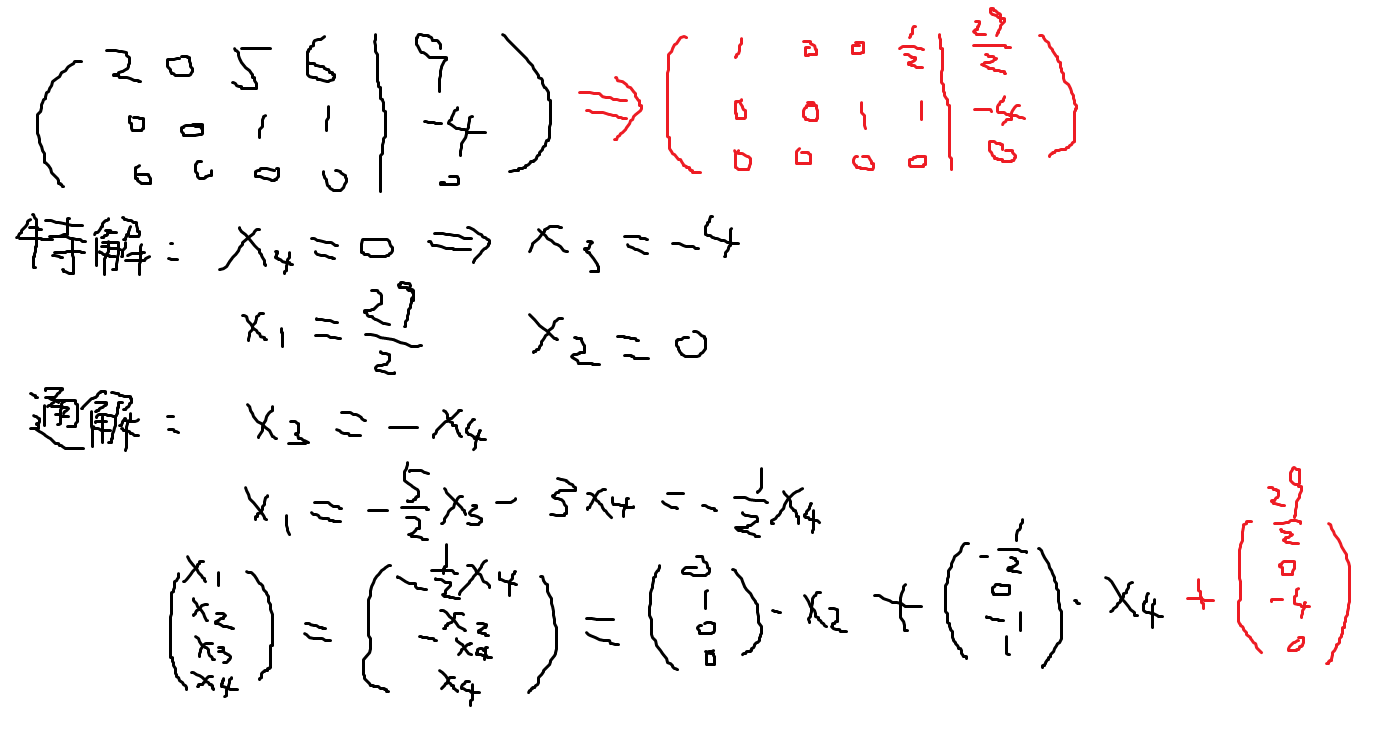 ( 2 0 5 6 | 9 ) ⇒ ( 1 0 0 1/2 | 29/2 )
( 0 0 1 1 | -4 ) ( 0 0 1 1 | -4 )
( 0 0 0 0 | 0 ) ( 0 0 0 0 | 0 )
特解: x₄ = 0 ⇒ x₃ = -4
x₁ = 29/2 x₂ = 0
通解: x₃ = -x₄
x₁ = -5/2 x₃ - 3x₄ = -1/2 x₄
(x₁ x₂ x₃ x₄) = (-1/2 x₄ x₂ -x₄ x₄) = (0 1 0 0) · x₂ + (-1/2 0 -1 1) · x₄ + (29/2 0 -4 0)